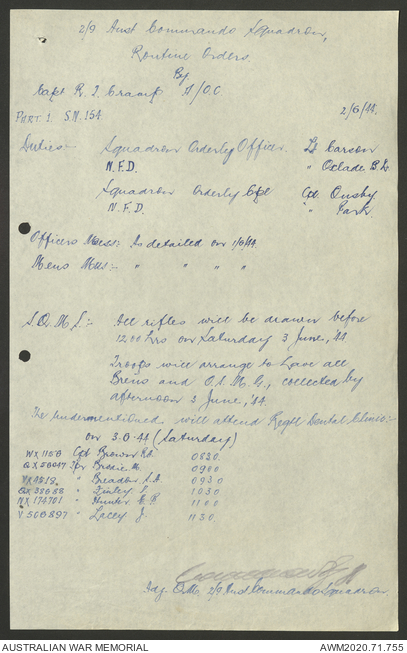 2/9 Aust Commando Squadron,
Routine Orders
By
Capt R. J. Cramp A/O.C.
PART 1. S.N. 154. 2/6/44.
Duties Squadron Orderly Officer. Lt Carson
N.F.D. " Oclade
Squadron Orderly Cpl Cpl Ousby
N.F.D. " Park
Officers Mess: As detailed on 1/6/44.
Mens Mess:- " " " "
S.Q.M.S:- All rifles will be drawn before
1200 hrs on Saturday 3 June, '44
Troops will arrange to have all
Brens and O.S.M.G., collected by
afternoon 3 June, '44.
The undermentioned will attend Regtl Dental Clinic:-
on 3-6-44 (Saturday)
Cpl Brown 0830.
Tpr Brodie 0900
" Breaden 0930
QX " Finley 1030
NX 174701 " Hunter 1100
V 506897 " Lacey J. 1130
2/9 Aust Commando Squadron
AUSTRALIAN WAR MEMORIAL AWM2020.71.755